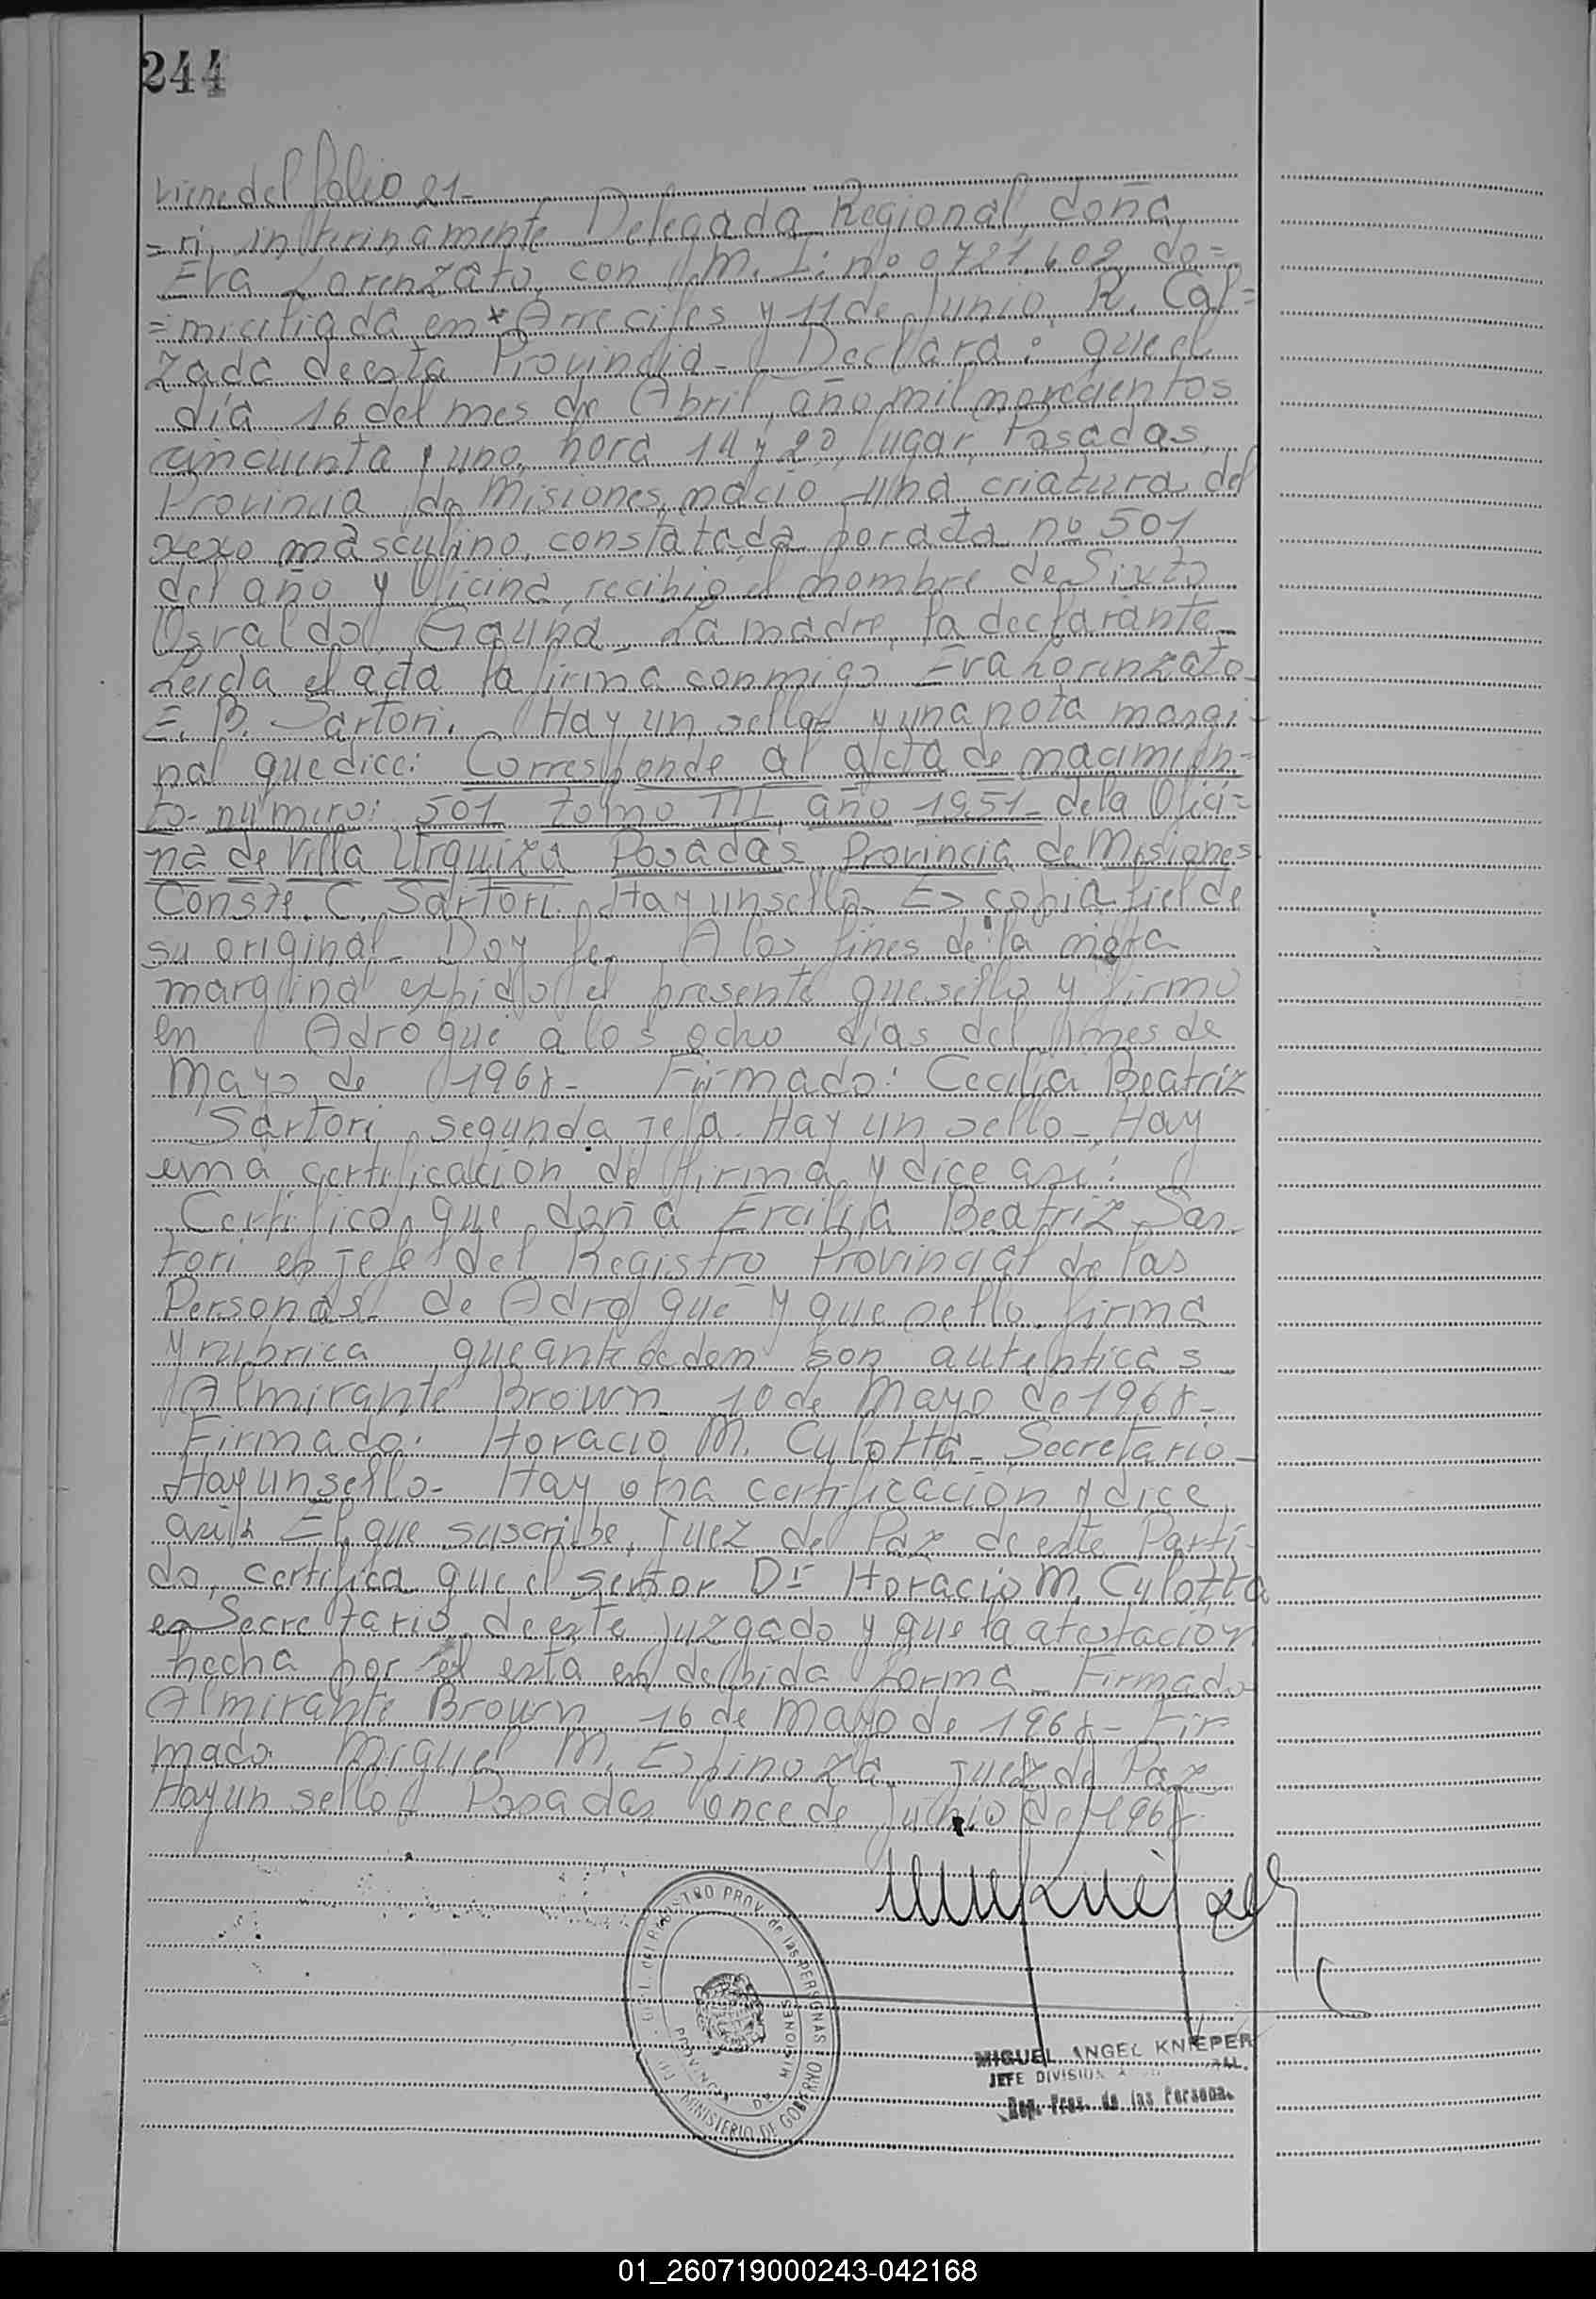 244
viene del folio 21-
=ri, interinamente Delegada Regional, doña
Eva Lorenzato, con M. I: nº 0721.602, do=
=miciliada en Arrecifes y 11 de Junio, R. Cal=
zada de esta Provincia- Declara: que el
día 16 del mes de Abril, año mil novecientos
cincuenta y uno, hora 14 y 20, lugar, Posadas,
Provincia de Misiones, nacio una criatura del
sexo masculino, constatada por acta nº 501
del año y Oficina, recibio el nombre de Sixto
Osvaldo Gauna- La madre, la declarante-
Leida el acta la firma conmigo Eva Lorenzato-
E. B. Sartori. Hay un sello- y una nota margi-
nal que dice: Corresponde al acta de nacimien-
to- numero: 501 tomo III, año 1951- de la Ofici=
na de Villa Urquiza Posadas Provincia de Misiones
Conste. C. Sartori. Hay un sello- Es copia fiel de
su original- Doy fe- A los fines de la nota
marginal expido el presente que sello y firmo
en Adrogué a los ocho dias del mes de
Mayo de 1968- Firmado: Cecilia Beatriz
Sartori, segunda jefa. Hay un sello- Hay
una certificacion de firma y dice asi:
Certifico que doña Ercilia Beatriz Sar-
tori es jefe del Registro Provincial de las
Personas- de Adrogué y que sello, firma
y rubrica que anteceden son autenticas-
Almirante Brown 10 de Mayo de 1968-
Firmado: Horacio M. Culotta- Secretario-
Hay un sello- Hay otra certificacion y dice
asi: El que suscribe, Juez de Paz de este Parti-
do, certifica que el señor Dr Horacio M. Culotta
es Secretario de este juzgado y que la atestacion
hecha por el esta en debida forma- Firmado
Almirante Brown 16 de Mayo de 1968- Fir
mado Miguel M. Espinoza, Juez de Paz
Hay un sello- Posadas once de Junio de 1968-
REGISTRO PROV. de las PERSONAS
PROVINCIA DE MISIONES
MINISTERIO DE GOBIERNO
MIGUEL ANGEL KNIEPER
JEFE DIVISION
Reg. Prov. de las Persona.
01_260719000243-042168